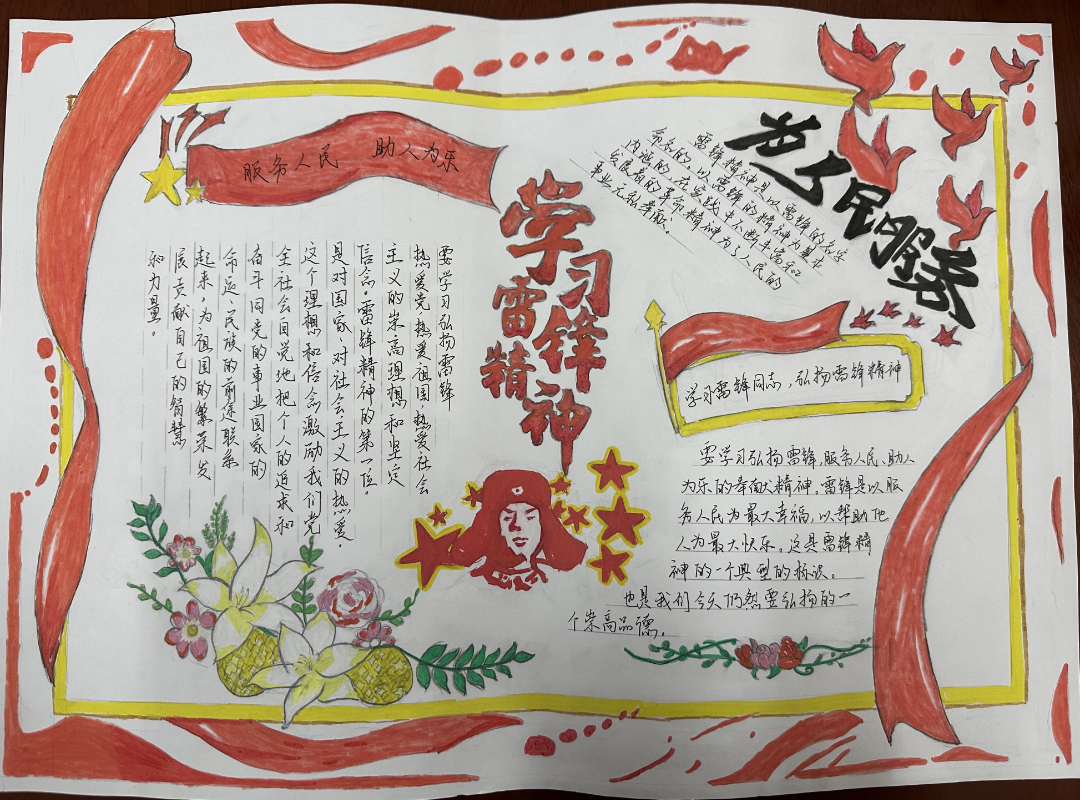 服务人民 助人为乐
要学习弘扬雷锋
热爱党,热爱祖国,热爱社会
主义的崇高理想和坚定
信念。雷锋精神的第一位。
是对国家、对社会主义的热爱.
这个理想和信念激励我们党
全社会自觉地把个人的追求和
奋斗同党的事业国家的
命运,民族的前途联系
起来,为祖国的繁荣发
展贡献自己的智慧
和力量。
学习
雷锋
精神
为人民服务
雷锋精神是以雷锋的名字
命名的,以雷锋的精神为基本
内涵的,在实践中不断丰富和
发展着的革命精神为了人民的
事业无私奉献。
学习雷锋同志,弘扬雷锋精神
要学习弘扬雷锋,服务人民、助人
为乐的奉献大精神。雷锋是以服
务人民为最大幸福,以帮助他
人为最大快乐。这是雷锋精
神的一个典型的标识。
也是我们今天仍然要弘扬的一
个崇高品德。